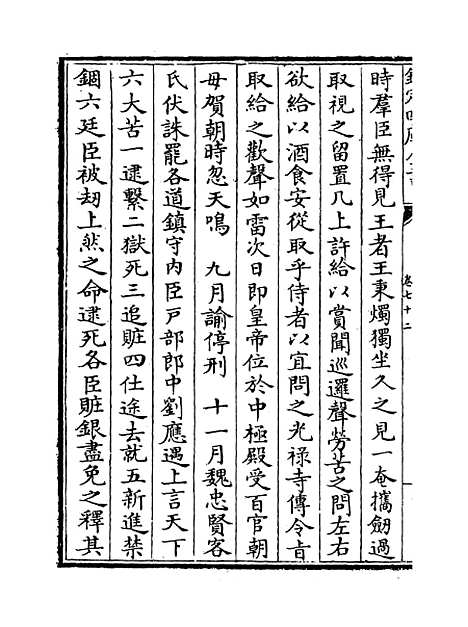 欽定四庫全書
卷七十二
時羣臣無得見王者王秉燭獨坐久之見一奄攜劒過
取視之留置几上許給以賞聞巡邏聲勞苦之問左右
欲給以酒食安從取乎侍者以宜問之光禄寺傳令㫖
取給之歡聲如雷次日即皇帝位於中極殿受百官朝
毋賀朝時忽天鳴　九月諭停刑　十一月魏忠賢客
氏伏誅罷各道鎮守内臣戸部郎中劉應遇上言天下
六大苦一逮繫二獄死三追贓四仕途去就五新進禁
錮六廷臣被刼上然之命逮死各臣贓銀盡免之釋其